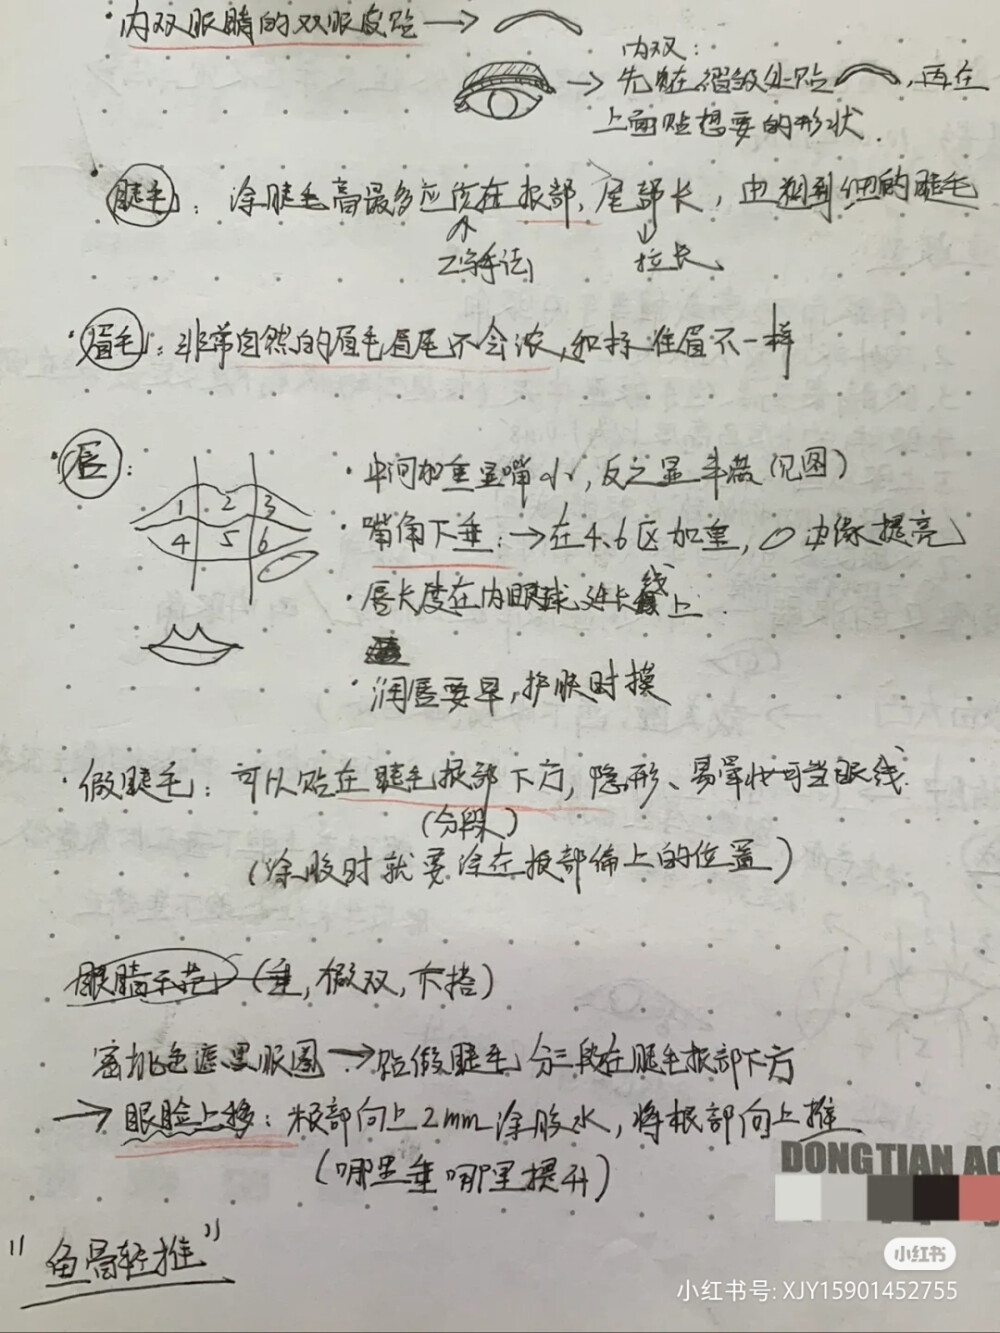 ·内双眼睛的双眼皮贴 →
内双：
→ 先贴在褶皱处贴 ，再在
上面贴想要的形状.
·睫毛：涂睫毛膏最多应该在根部，尾部长，由粗到细的睫毛
Z字手法
拉长
·眉毛：非常自然的眉毛眉尾不会浓，和标准眉不一样
·唇：
1 2 3
4 5 6
·中间加重显嘴小，反之显丰满(见图)
·嘴角下垂：→在4、6区加重， 边缘提亮
·唇长度在内眼球延长线上
·润唇要早，护肤时摸
·假睫毛：可以贴在睫毛根部下方，隐形、
(分段)
(涂胶时就要涂在根部偏上的位置)
眼睛示范 (垂，假双，
蜜桃色遮黑眼圈→贴假睫毛 分三段在睫毛根部下方
→眼睑上移：根部向上2mm涂胶水，将根部向上推
(哪里垂哪里提升)
"鱼骨轻推"
DONGTIAN AC
小红书
小红书号: XJY15901452755